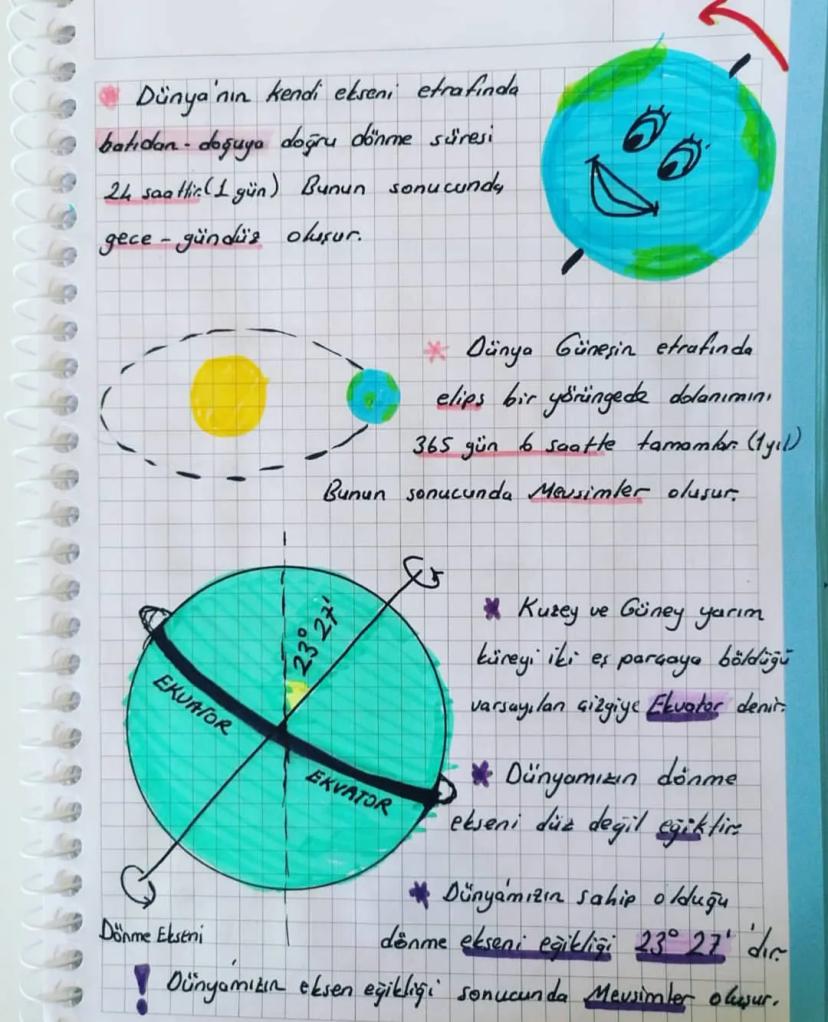 * Dünya'nın kendi ekseni etrafında
batıdan - doğuya doğru dönme süresi
24 saattir.(1 gün) Bunun sonucunda
gece - gündüz oluşur.
* Dünya Güneşin etrafında
elips bir yörüngede dolanımını
365 gün 6 saatte tamamlar. (1yıl)
Bunun sonucunda Mevsimler oluşur.
23° 27'
EKVATOR
EKVATOR
Dönme Ekseni
* Kuzey ve Güney yarım
küreyi iki eş parçaya böldüğü
varsayılan çizgiye Ekvator denir.
* Dünyamızın dönme
ekseni düz değil eğiktir.
* Dünyamızın sahip olduğu
dönme ekseni eğikliği 23° 27' 'dır.
! Dünyamızın eksen eğikliği sonucunda Mevsimler oluşur.